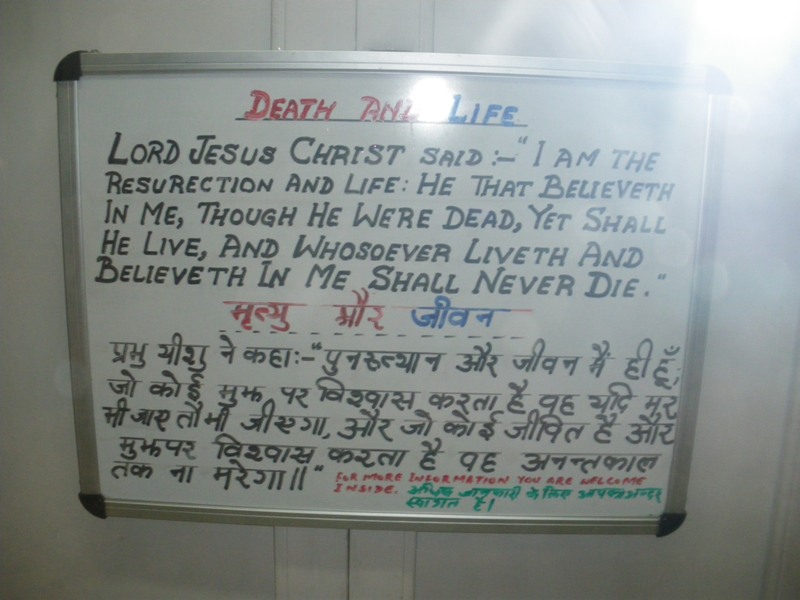 DEATH AND LIFE
LORD JESUS CHRIST SAID :- "I AM THE
RESURECTION AND LIFE: HE THAT BELIEVETH
IN ME, THOUGH HE WERE DEAD, YET SHALL
HE LIVE, AND WHOSOEVER LIVETH AND
BELIEVETH IN ME SHALL NEVER DIE."
मृत्यु और जीवन
प्रभु यीशु ने कहाः-"पुनरुत्थान और जीवन मैं ही हूँ,
जो कोई मुझ पर विश्वास करता है वह यदि मर
भी जाए तौभी जीएगा, और जो कोई जीवित है और
मुझपर विश्वास करता है वह अनन्तकाल
तक ना मरेगा॥"
FOR MORE INFORMATION YOU ARE WELCOME
INSIDE. अधिक जानकारी के लिए आपका अन्दर
स्वागत है।